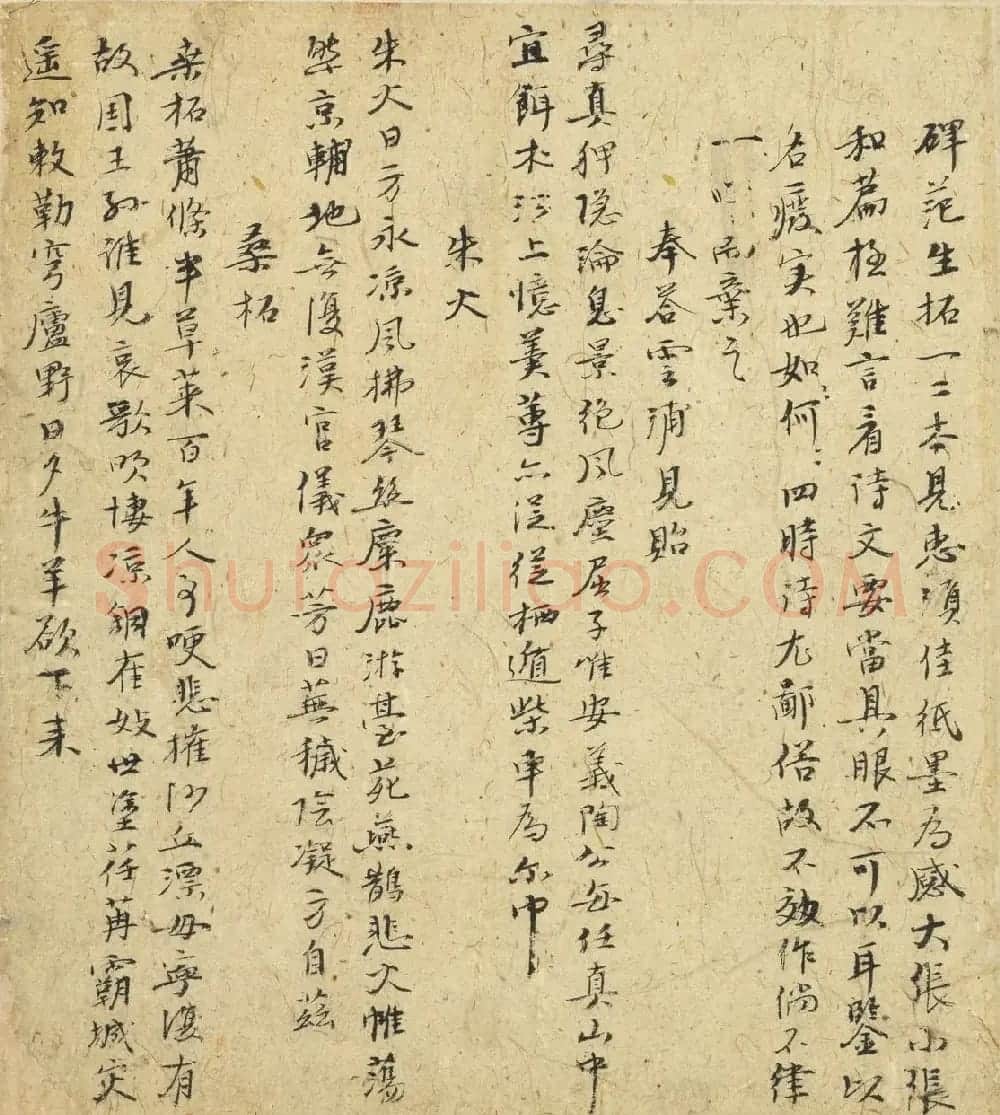 碑范生拓一二本見惠須佳紙墨為感大張小張
和篇極難言看詩文要當具眼不可以耳鑒以
名癈実也如何〻四時詩尤鄙俗故不效作倘不律
一 而棄之
奉荅雲浦見貽
尋真狎隐淪息景絶風塵居子惟安義陶公每任真山中
宜餌朮江上憶羹蓴亦足從栖遁柴車為尔巾
朱火
朱火日方永凉風拂琴絲麋鹿游臺苑燕鵲悲火帷蕩
然京輔地無復漢官儀衆芳日蕪穢陰凝方自兹
桑柘
桒柘萧條半草莱百年人事哽悲摧沙丘漂母寧復有
故国王孫誰見哀歌吹悽凉銅雀妓世塗荏苒霸城灾
遥知敕勒穹廬野日夕牛羊欲下来
Shufaziliao.COM